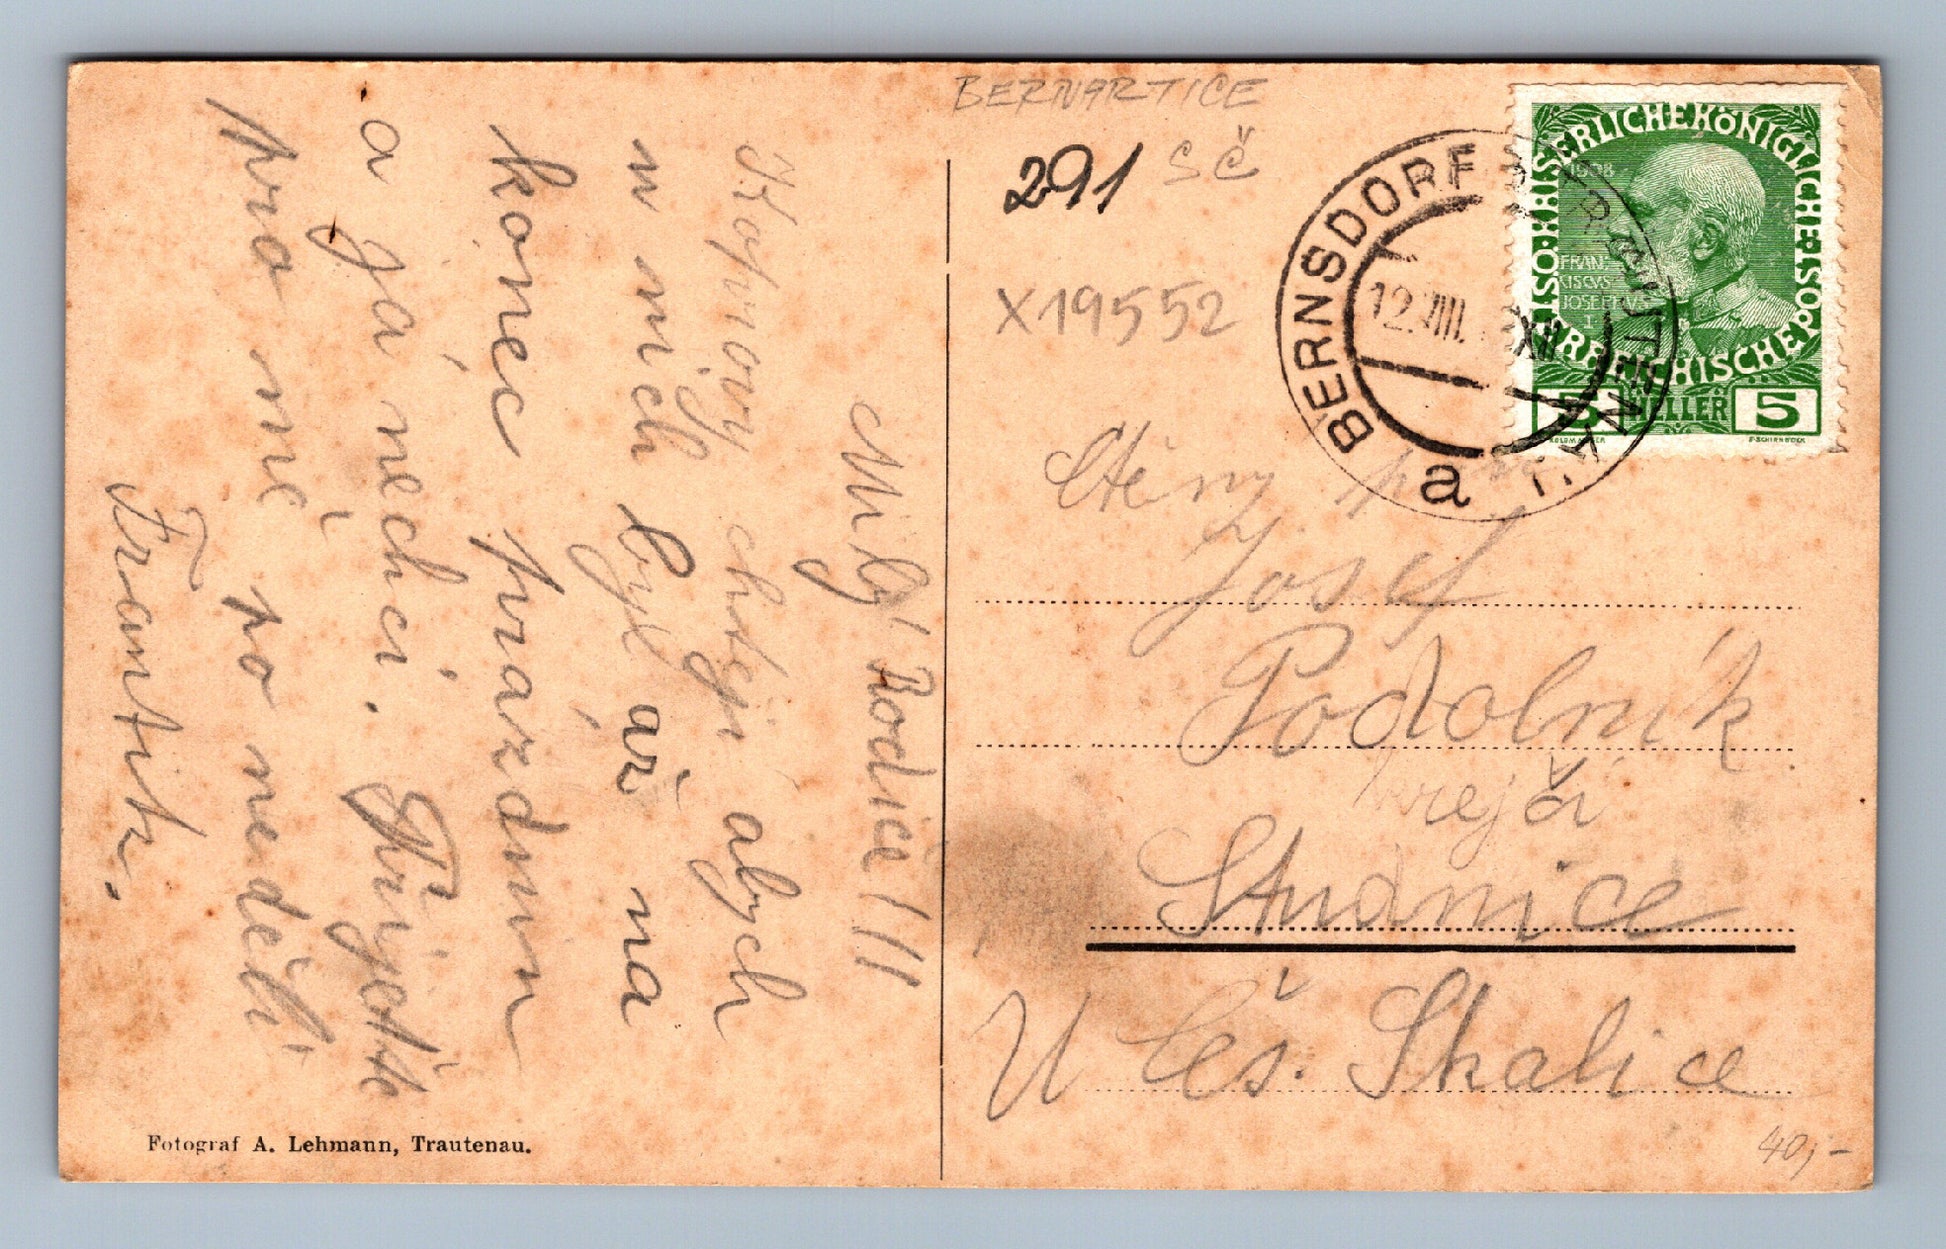 Milý Rodice!!!
chtejí abych
u nich byl až na
konec prazdnin
a já nechci. Přijedte
pro mně po neděli
Frantik.
Fotograf A. Lehmann, Trautenau.
BERNARTICE
291 SČ
X19552
BERNSDORF b. TRAUTENAU
12.VIII. XII
a
KAISERLICHE KÖNIGLICHE ÖSTERREICHISCHE POST
1908
FRANCISCVS JOSEFVS I
5 HELLER 5
Ctěny p
Josef
Podolník
krejčí
Studnice
U Čes. Skalice
40,-